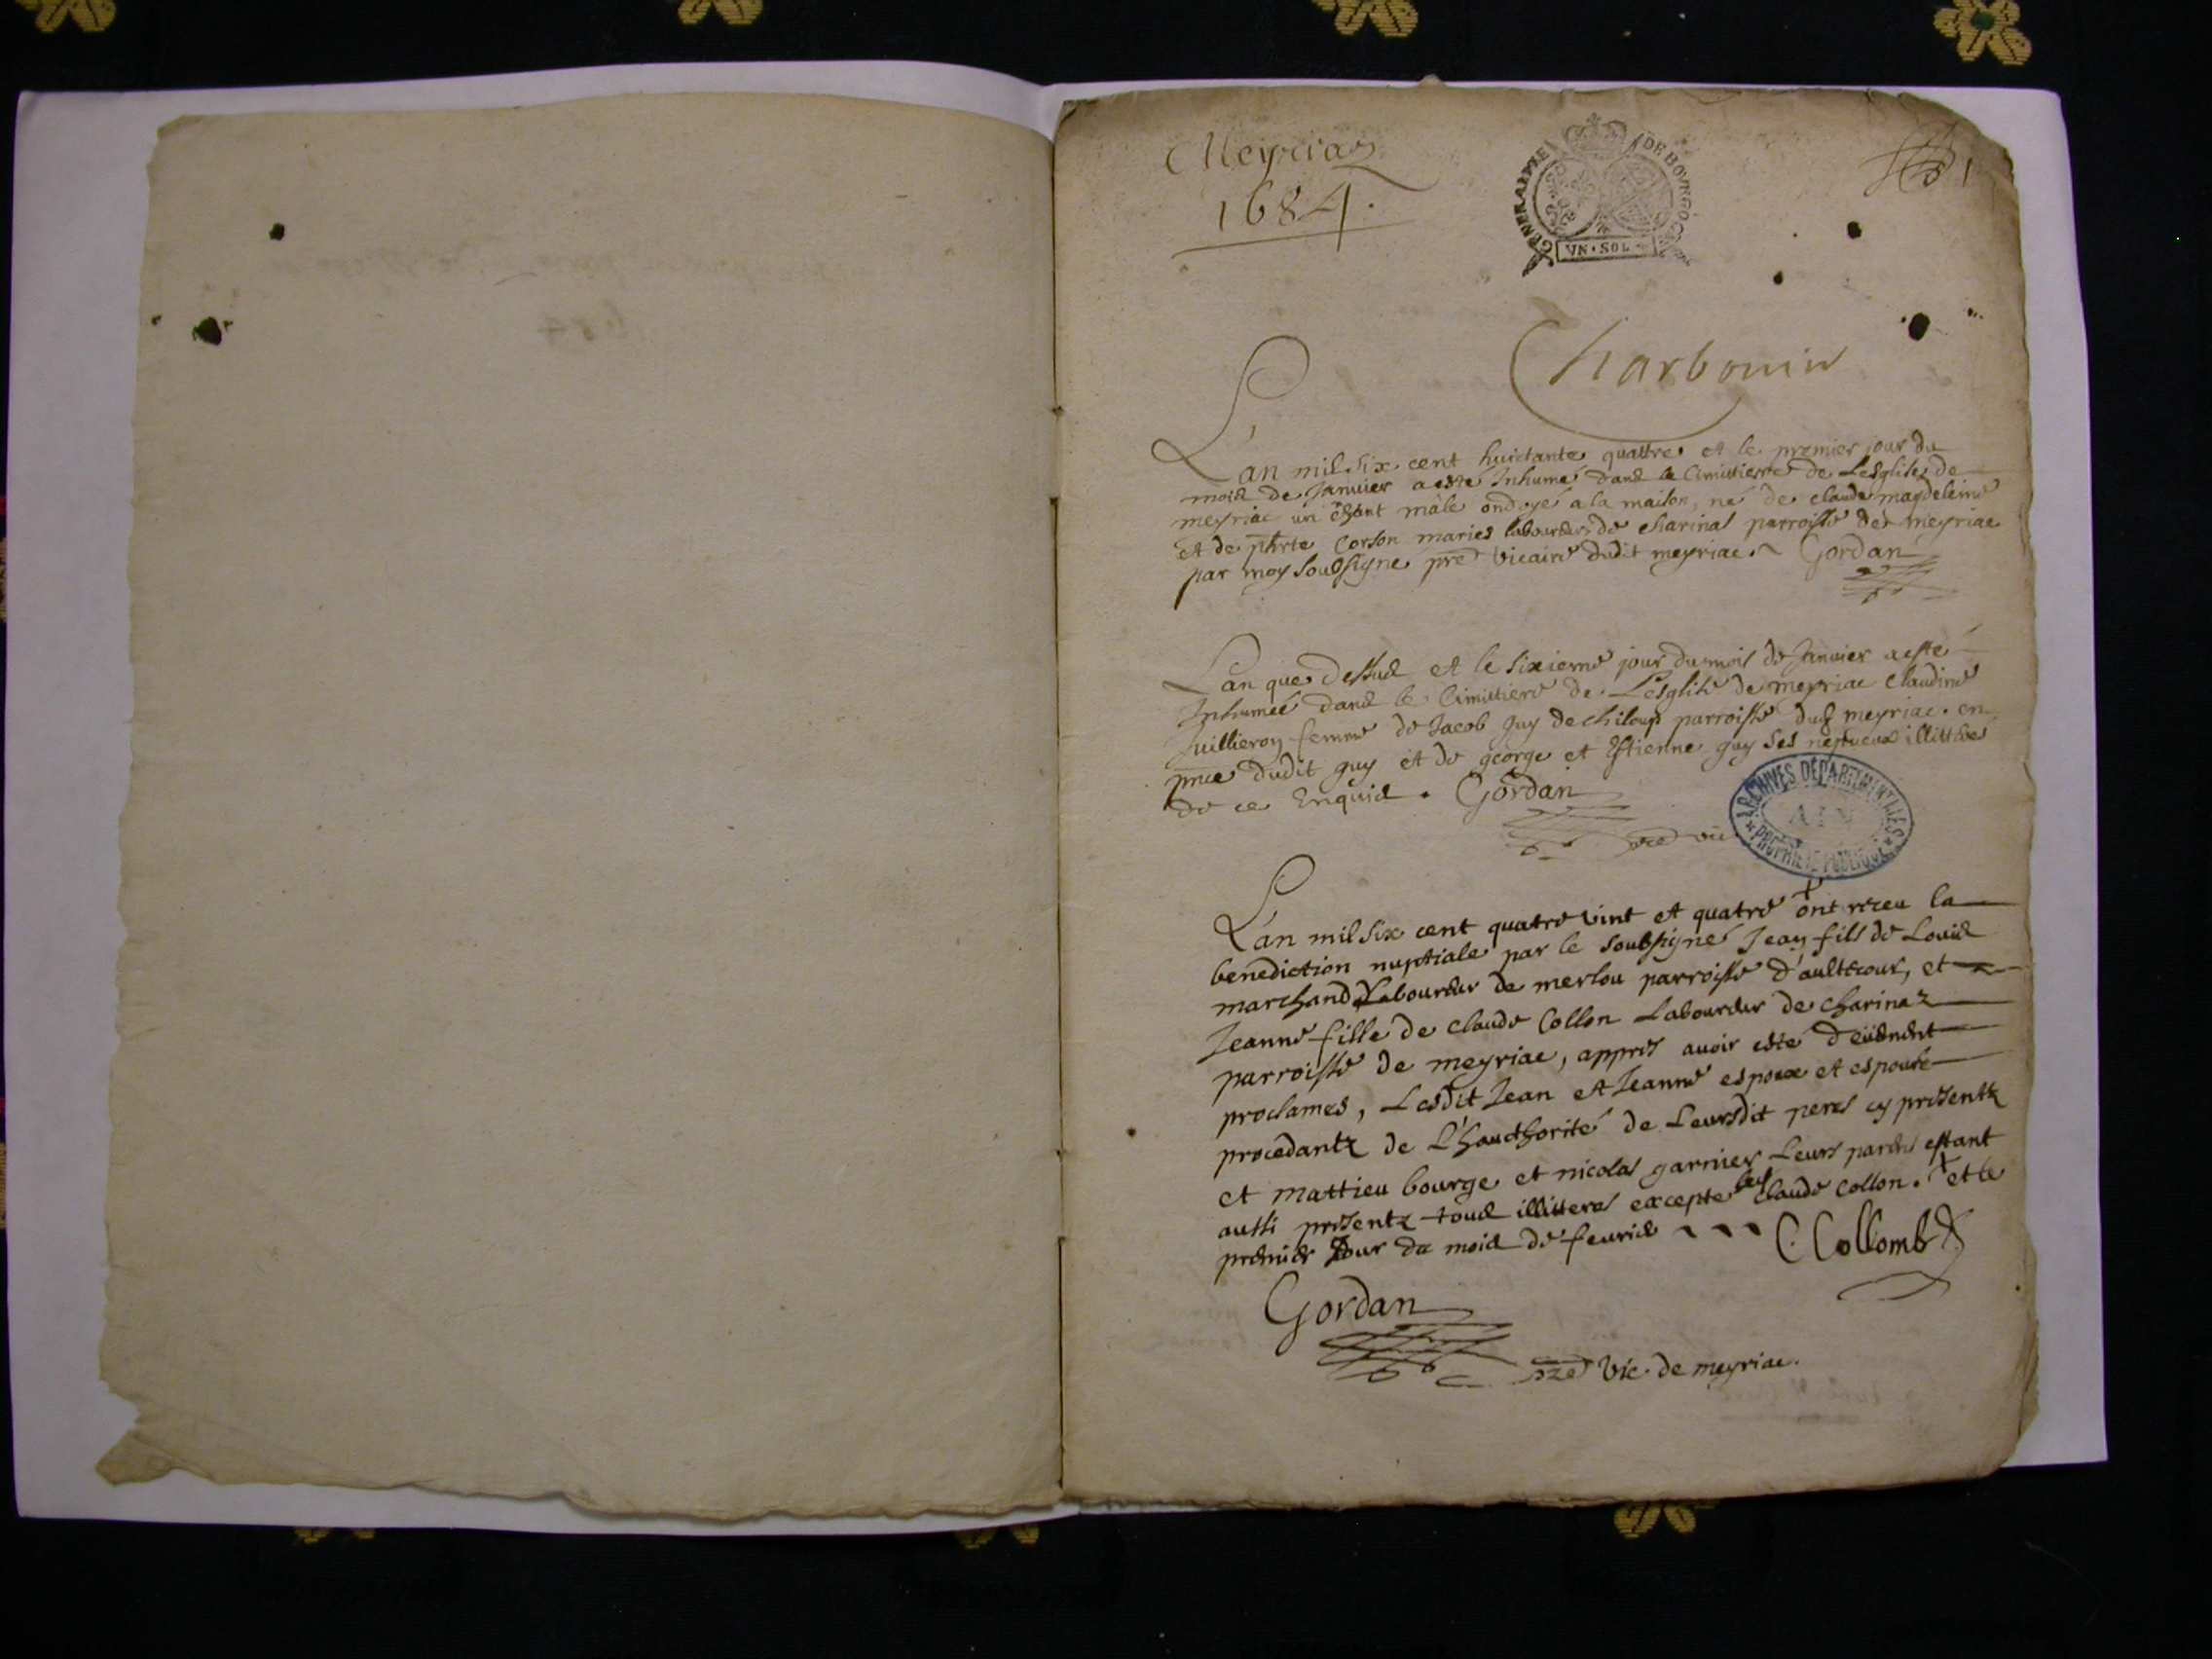 Meyriaz
1684.
GENERALITE DE BOVRGO
VN·SOL
Charbonin
L'an mil six cent huictante quattre et le premier jour du
mois de Janvier a esté Inhumé dans le Cimittiere de L'esglise de
meyriac un efant mâle ondoyé a la maison, né de claude magdeleine
et de pierte Corson mariés laboureurs de charinas parroisse de meyriac
par moy soubsigne pre vicaire dudit meyriac. Gordan
L'an que dessus et le sixieme jour du mois de Janvier a esté
Inhumée dans le Cimittiere de L'esglise de meyriac Claudine
Juillieron femme de Jacob guy de chiloup parroisse dud meyriac. en
pnce dudit guy et de george et Estienne guy ses nepveux illitteres
de ce Enquis. Gordan
pre vic
ARCHIVES DÉPARTEMENTALES
AIN
PROPRIÉTÉ PUBLIQUE
L'an mil six cent quatre vint et quatre + ont receu la
benediction nuptiale par le soubsigné Jean fils de Louis
marchand Laboureur de merlou parroisse d'aultecour, et
Jeanne fille de claude Collon Laboureur de charinaz
parroisse de meyriac, appres avoir esté deüement
proclames, Lesdit Jean et Jeanne espoux et espouse
procedantz de L'haucthorité de Leursdit peres cy presentz
et mattieu bourge et nicolas garnier Leurs parens estant
aussi presentz tous illitteres excepte led claude Collon. + et le
premier Jour du mois de fevrier C. Collomb
Gordan
pre vic. de meyriac.